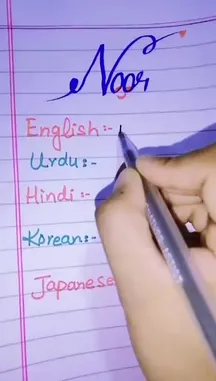 Noor
English :-
Urdu :-
Hindi :-
Korean :-
Japanese